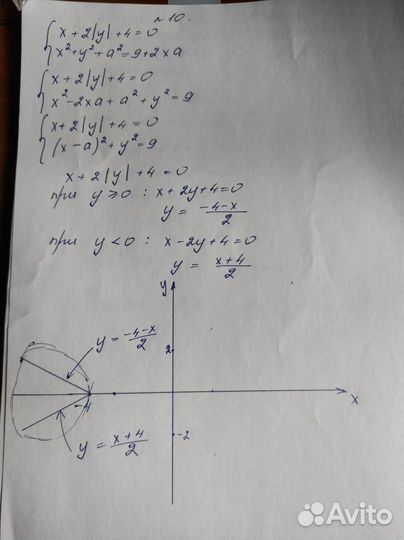 № 10.
{ x + 2|y| + 4 = 0
x² + y² + a² = 9 + 2xa
{ x + 2|y| + 4 = 0
x² - 2xa + a² + y² = 9
{ x + 2|y| + 4 = 0
(x - a)² + y² = 9
x + 2|y| + 4 = 0
при y ≥ 0 : x + 2y + 4 = 0
y = (-4-x)/2
при y < 0 : x - 2y + 4 = 0
y = (x+4)/2
y
y = (-4-x)/2
2
-4
x
-2
y = (x+4)/2
Avito